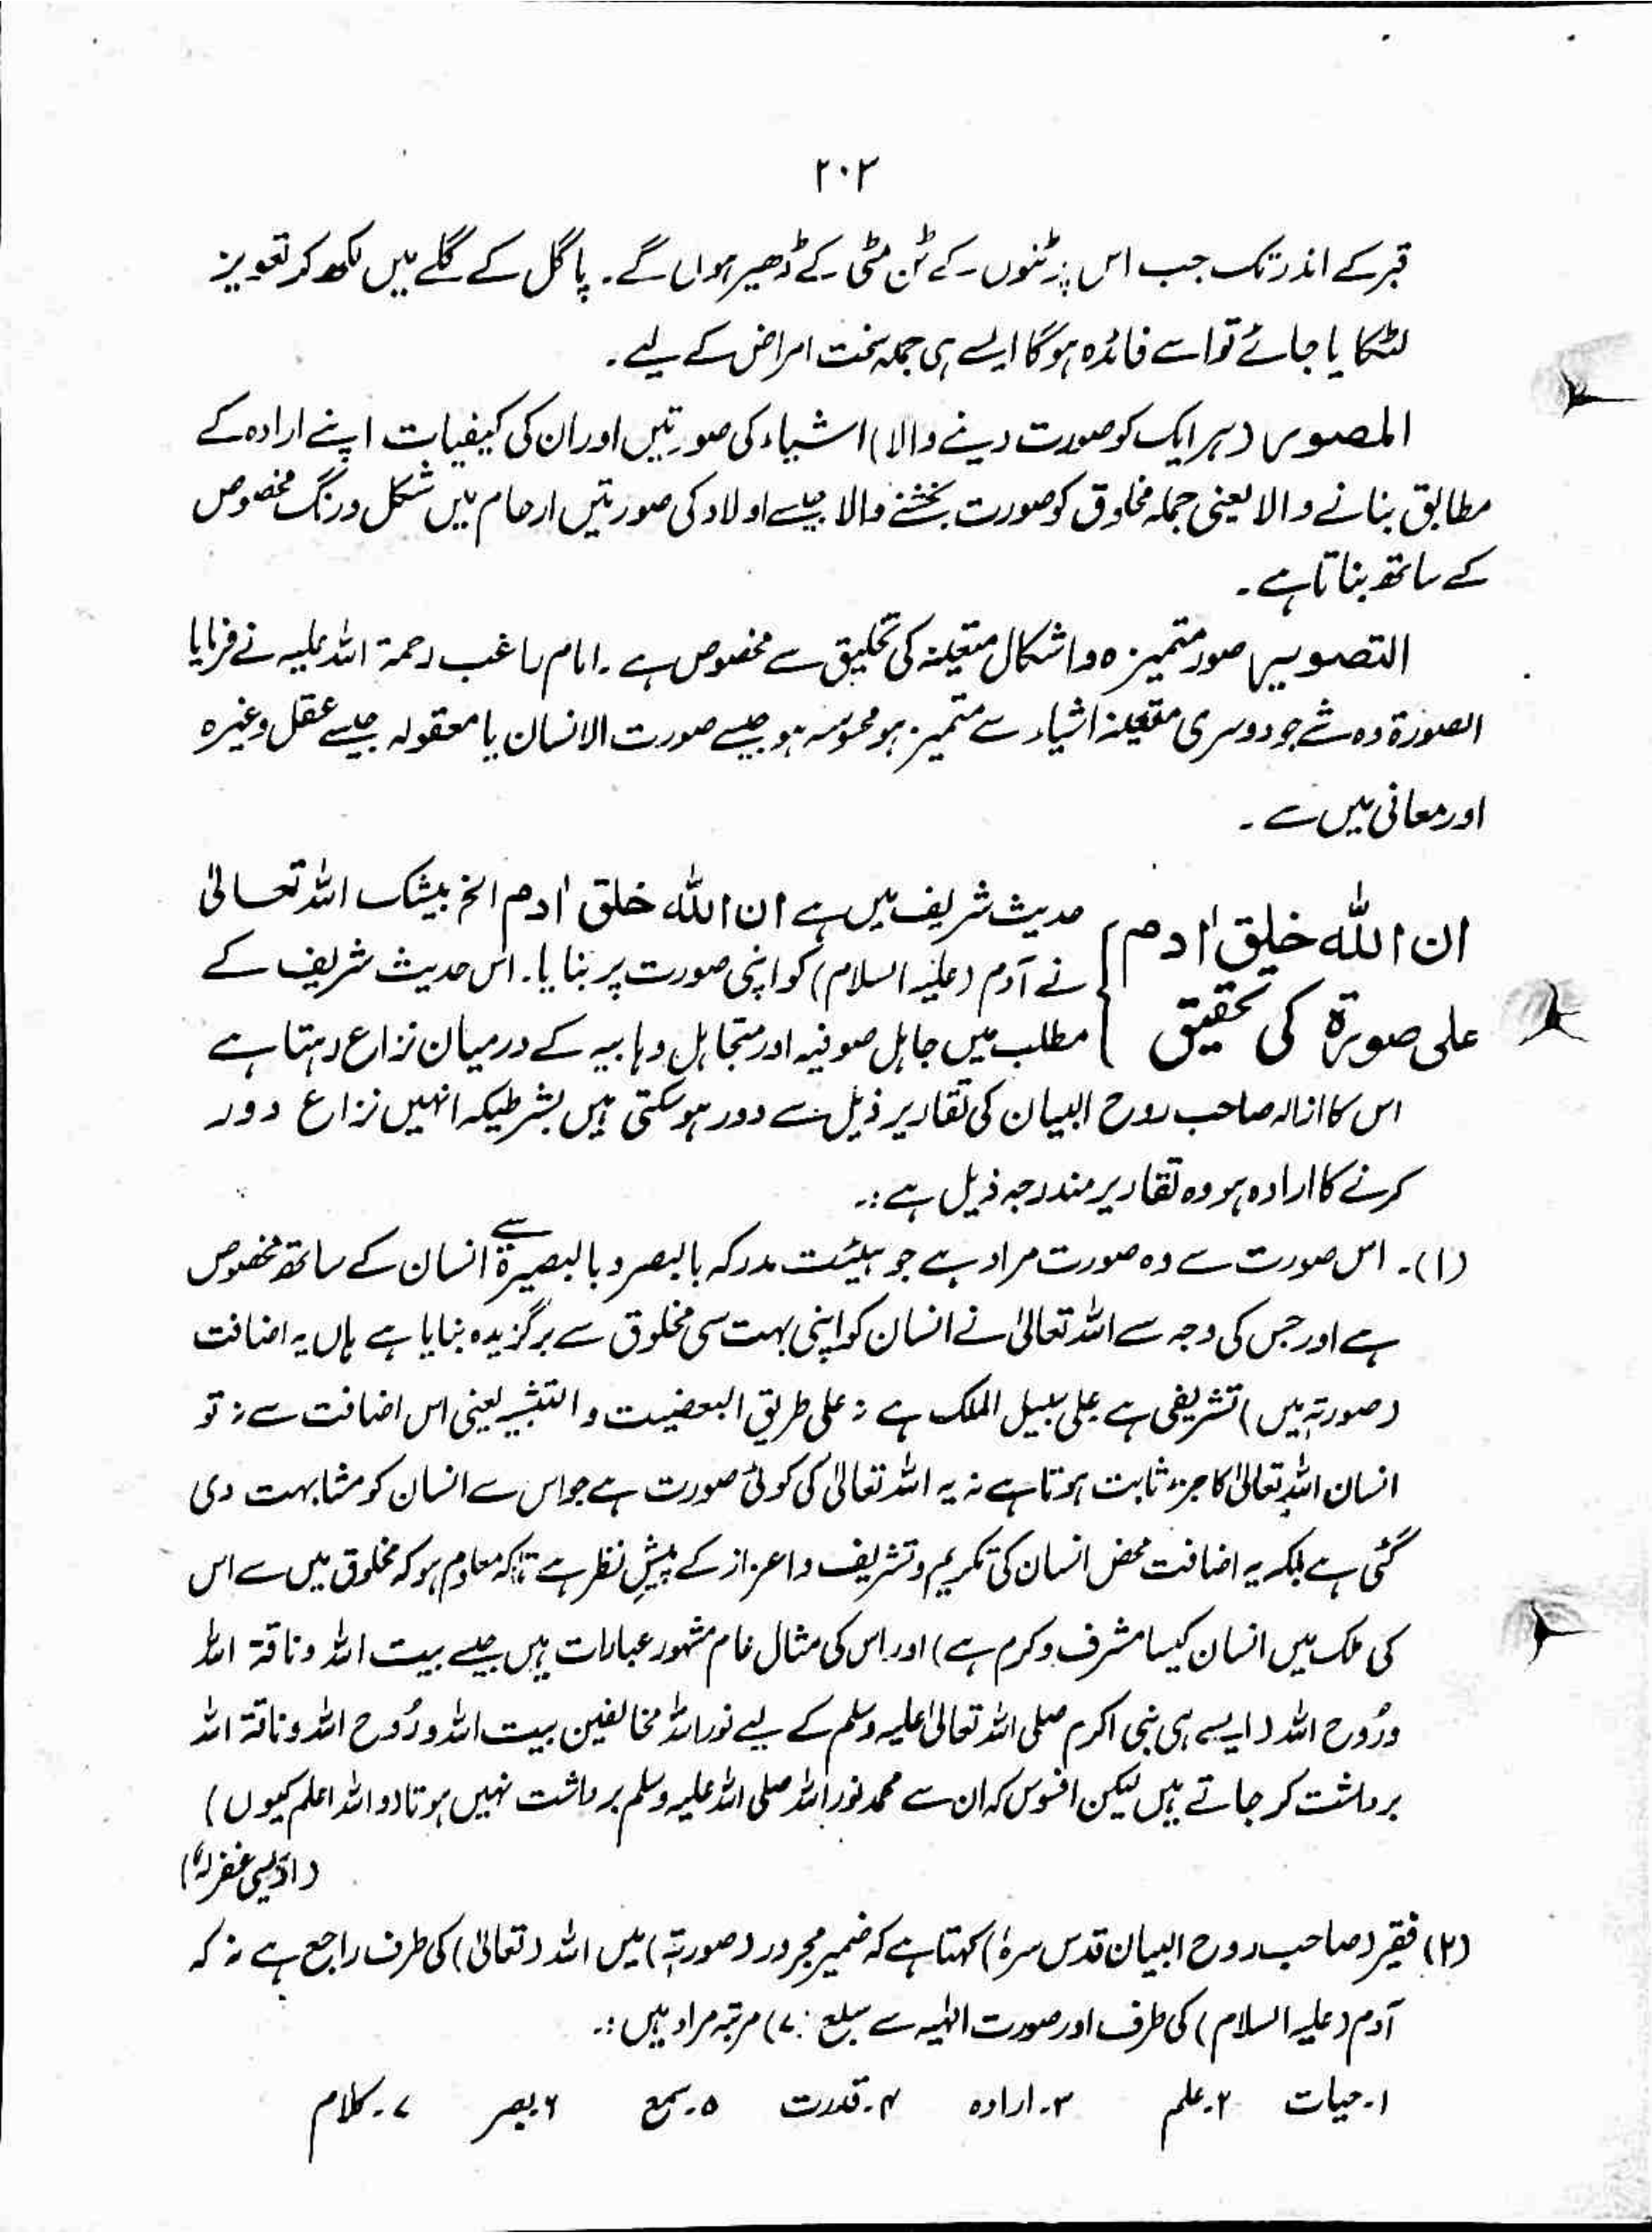 ۲۰۲
قبر کے اندر تک جب اس پر ٹنوں کے ٹن مٹی کے ڈھیر ہوں گے۔ پاگل کے گلے میں لکھ کر تعویز
لٹکایا جائے تو اسے فائدہ ہوگا ایسے ہی جملہ سخت امراض کے لیے۔
المصور (ہر ایک کو صورت دینے والا) اشیاء کی صورتیں اور ان کی کیفیات اپنے ارادہ کے
مطابق بنانے والا یعنی جملہ مخلوق کو صورت بخشنے والا جیسے اولاد کی صورتیں ارحام میں شکل و رنگ مخصوص
کے ساتھ بناتا ہے۔
التصویر صور متمیزہ و اشکال متعینہ کی تخلیق سے مخصوص ہے۔ امام راغب رحمۃ اللہ علیہ نے فرمایا
الصورۃ وہ شے جو دوسری متعینہ اشیاء سے متمیز ہو محسوسہ ہو جیسے صورت الانسان یا معقولہ جیسے عقل وغیرہ
اور معانی میں سے ۔
ان اللہ خلق اٰدم
علی صورتہ کی تحقیق
حدیث شریف میں ہے ان اللہ خلق اٰدم الخ بیشک اللہ تعالیٰ
نے آدم (علیہ السلام) کو اپنی صورت پر بنایا۔ اس حدیث شریف کے
مطلب میں جاہل صوفیہ اور متجاہل وہابیہ کے درمیان نزاع رہتا ہے
اس کا ازالہ صاحب روح البیان کی تقاریر ذیل سے دور ہو سکتی ہیں بشرطیکہ انہیں نزاع دور
کرنے کا ارادہ ہو وہ تقاریر مندرجہ ذیل ہے:۔
(۱)۔ اس صورت سے وہ صورت مراد ہے جو ہیئت مدرکہ بالبصر و بالبصیرۃ سے انسان کے ساتھ مخصوص
ہے اور جس کی وجہ سے اللہ تعالیٰ نے انسان کو اپنی بہت سی مخلوق سے برگزیدہ بنایا ہے ہاں یہ اضافت
(صورتہ میں) تشریفی ہے علی سبیل الملک ہے نہ علی طریق البعضیت والتشبیہ یعنی اس اضافت سے نہ تو
انسان اللہ تعالیٰ کا جزء ثابت ہوتا ہے نہ یہ اللہ تعالیٰ کی کوئی صورت ہے جو اس سے انسان کو مشابہت دی
گئی ہے بلکہ یہ اضافت محض انسان کی تکریم و تشریف و اعزاز کے پیش نظر ہے تاکہ معلوم ہو کہ مخلوق میں سے اس
کی ملک میں انسان کیسا مشرف و کرم ہے) اور اس کی مثال عام مشہور عبارات ہیں جیسے بیت اللہ و ناقۃ اللہ
و رُوح اللہ (ایسے ہی نبی اکرم صلی اللہ تعالیٰ علیہ وسلم کے لیے نور اللہ مخالفین بیت اللہ و رُوح اللہ و ناقۃ اللہ
برداشت کر جاتے ہیں لیکن افسوس کہ ان سے محمد نور اللہ صلی اللہ علیہ وسلم برداشت نہیں ہوتا (واللہ اعلم کیوں)
(اویسی غفرلہ)
(۲) فقیر (صاحب روح البیان قدس سرہٗ) کہتا ہے کہ ضمیر مجرور (صورتہٖ) میں اللہ (تعالیٰ) کی طرف راجع ہے نہ کہ
آدم (علیہ السلام) کی طرف اور صورت الٰہیہ سے سبع (۷) مرتبہ مراد ہیں:۔
۱۔ حیات ۲۔ علم ۳۔ ارادہ ۴۔ قدرت ۵۔ سمع ۶۔ بصر ۷۔ کلام